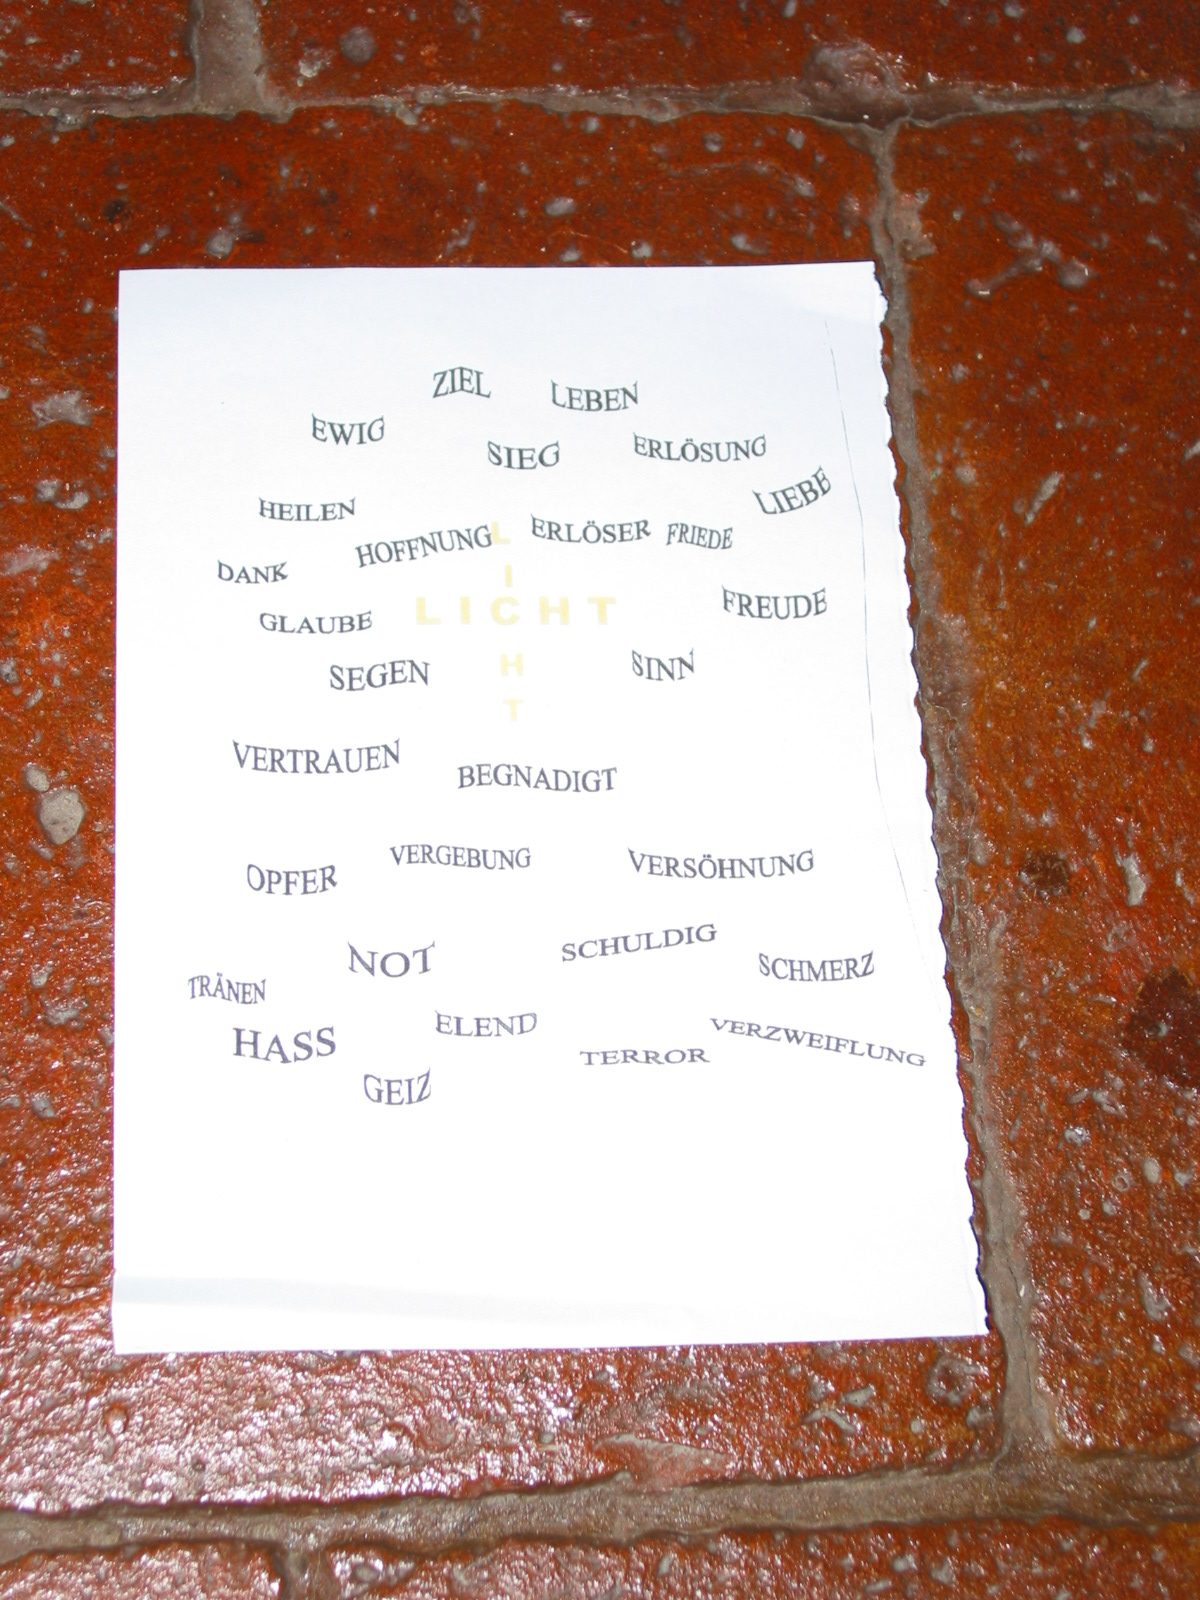 ZIEL LEBEN
EWIG SIEG ERLÖSUNG
HEILEN LIEBE
HOFFNUNG ERLÖSER FRIEDE
DANK FREUDE
GLAUBE LICHT
L
I
C
H
T
SEGEN SINN
VERTRAUEN BEGNADIGT
OPFER VERGEBUNG VERSÖHNUNG
NOT SCHULDIG SCHMERZ
TRÄNEN
HASS ELEND TERROR VERZWEIFLUNG
GEIZ